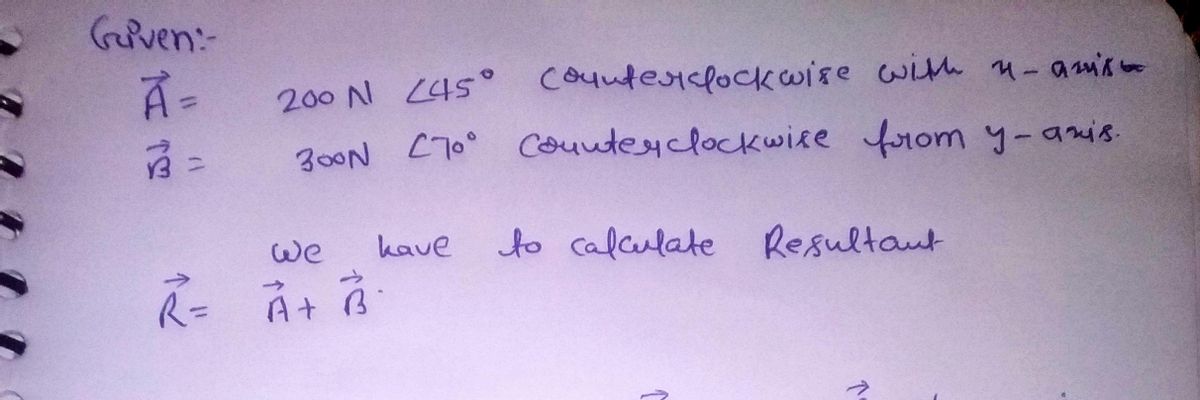 Given:-
A⃗ = 200 N ∠45° Counterclockwise with x-axis
B⃗ = 300N ∠70° Counterclockwise from y-axis.
we have to calculate Resultant
R⃗ = A⃗ + B⃗.